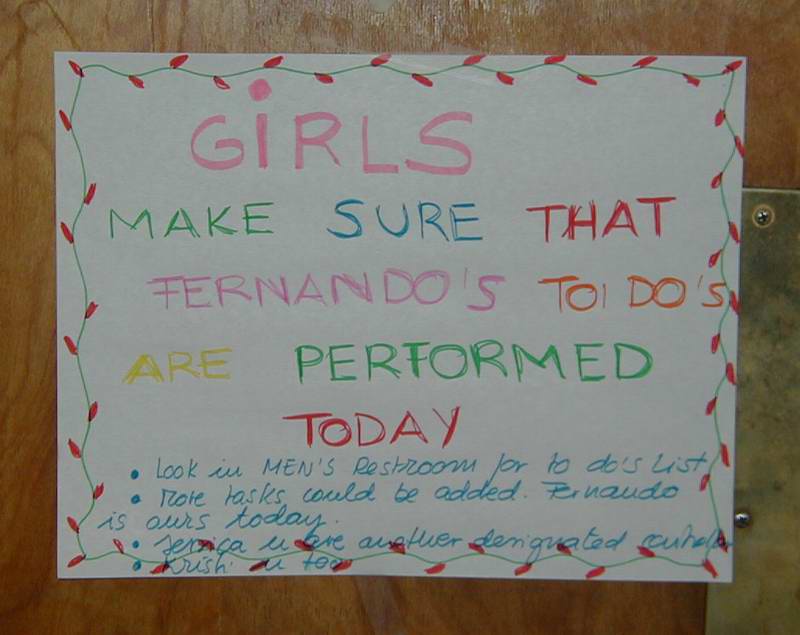 GIRLS
MAKE SURE THAT
FERNANDO'S TO DO'S
ARE PERFORMED
TODAY
• Look in MEN'S Restroom for to do's List
• More tasks could be added. Fernando
is ours today.
• Jessica u are another designated
• Krishi u too